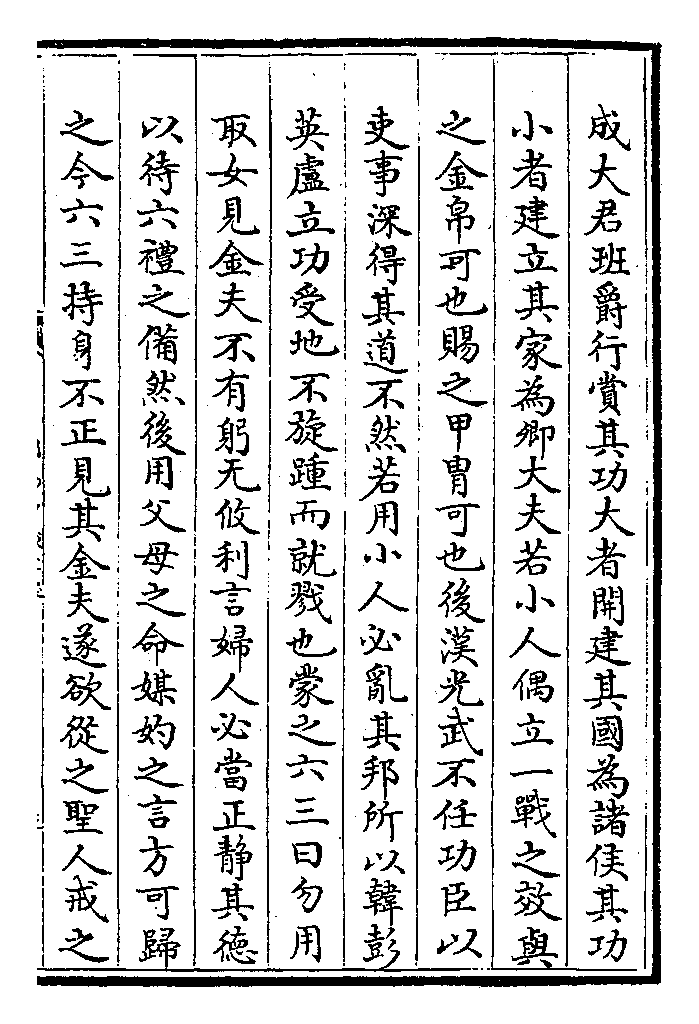 成大君班爵行賞其功大者開建其國為諸侯其功
小者建立其家為卿大夫若小人偶立一戰之效與
之金帛可也賜之甲胄可也後漢光武不任功臣以
吏事深得其道不然若用小人必亂其邦所以韓彭
英盧立功受地不旋踵而就戮也蒙之六三曰勿用
取女見金夫不有躬无攸利言婦人必當正静其德
以待六禮之備然後用父母之命媒妁之言方可歸
之今六三持身不正見其金夫遂欲從之聖人戒之